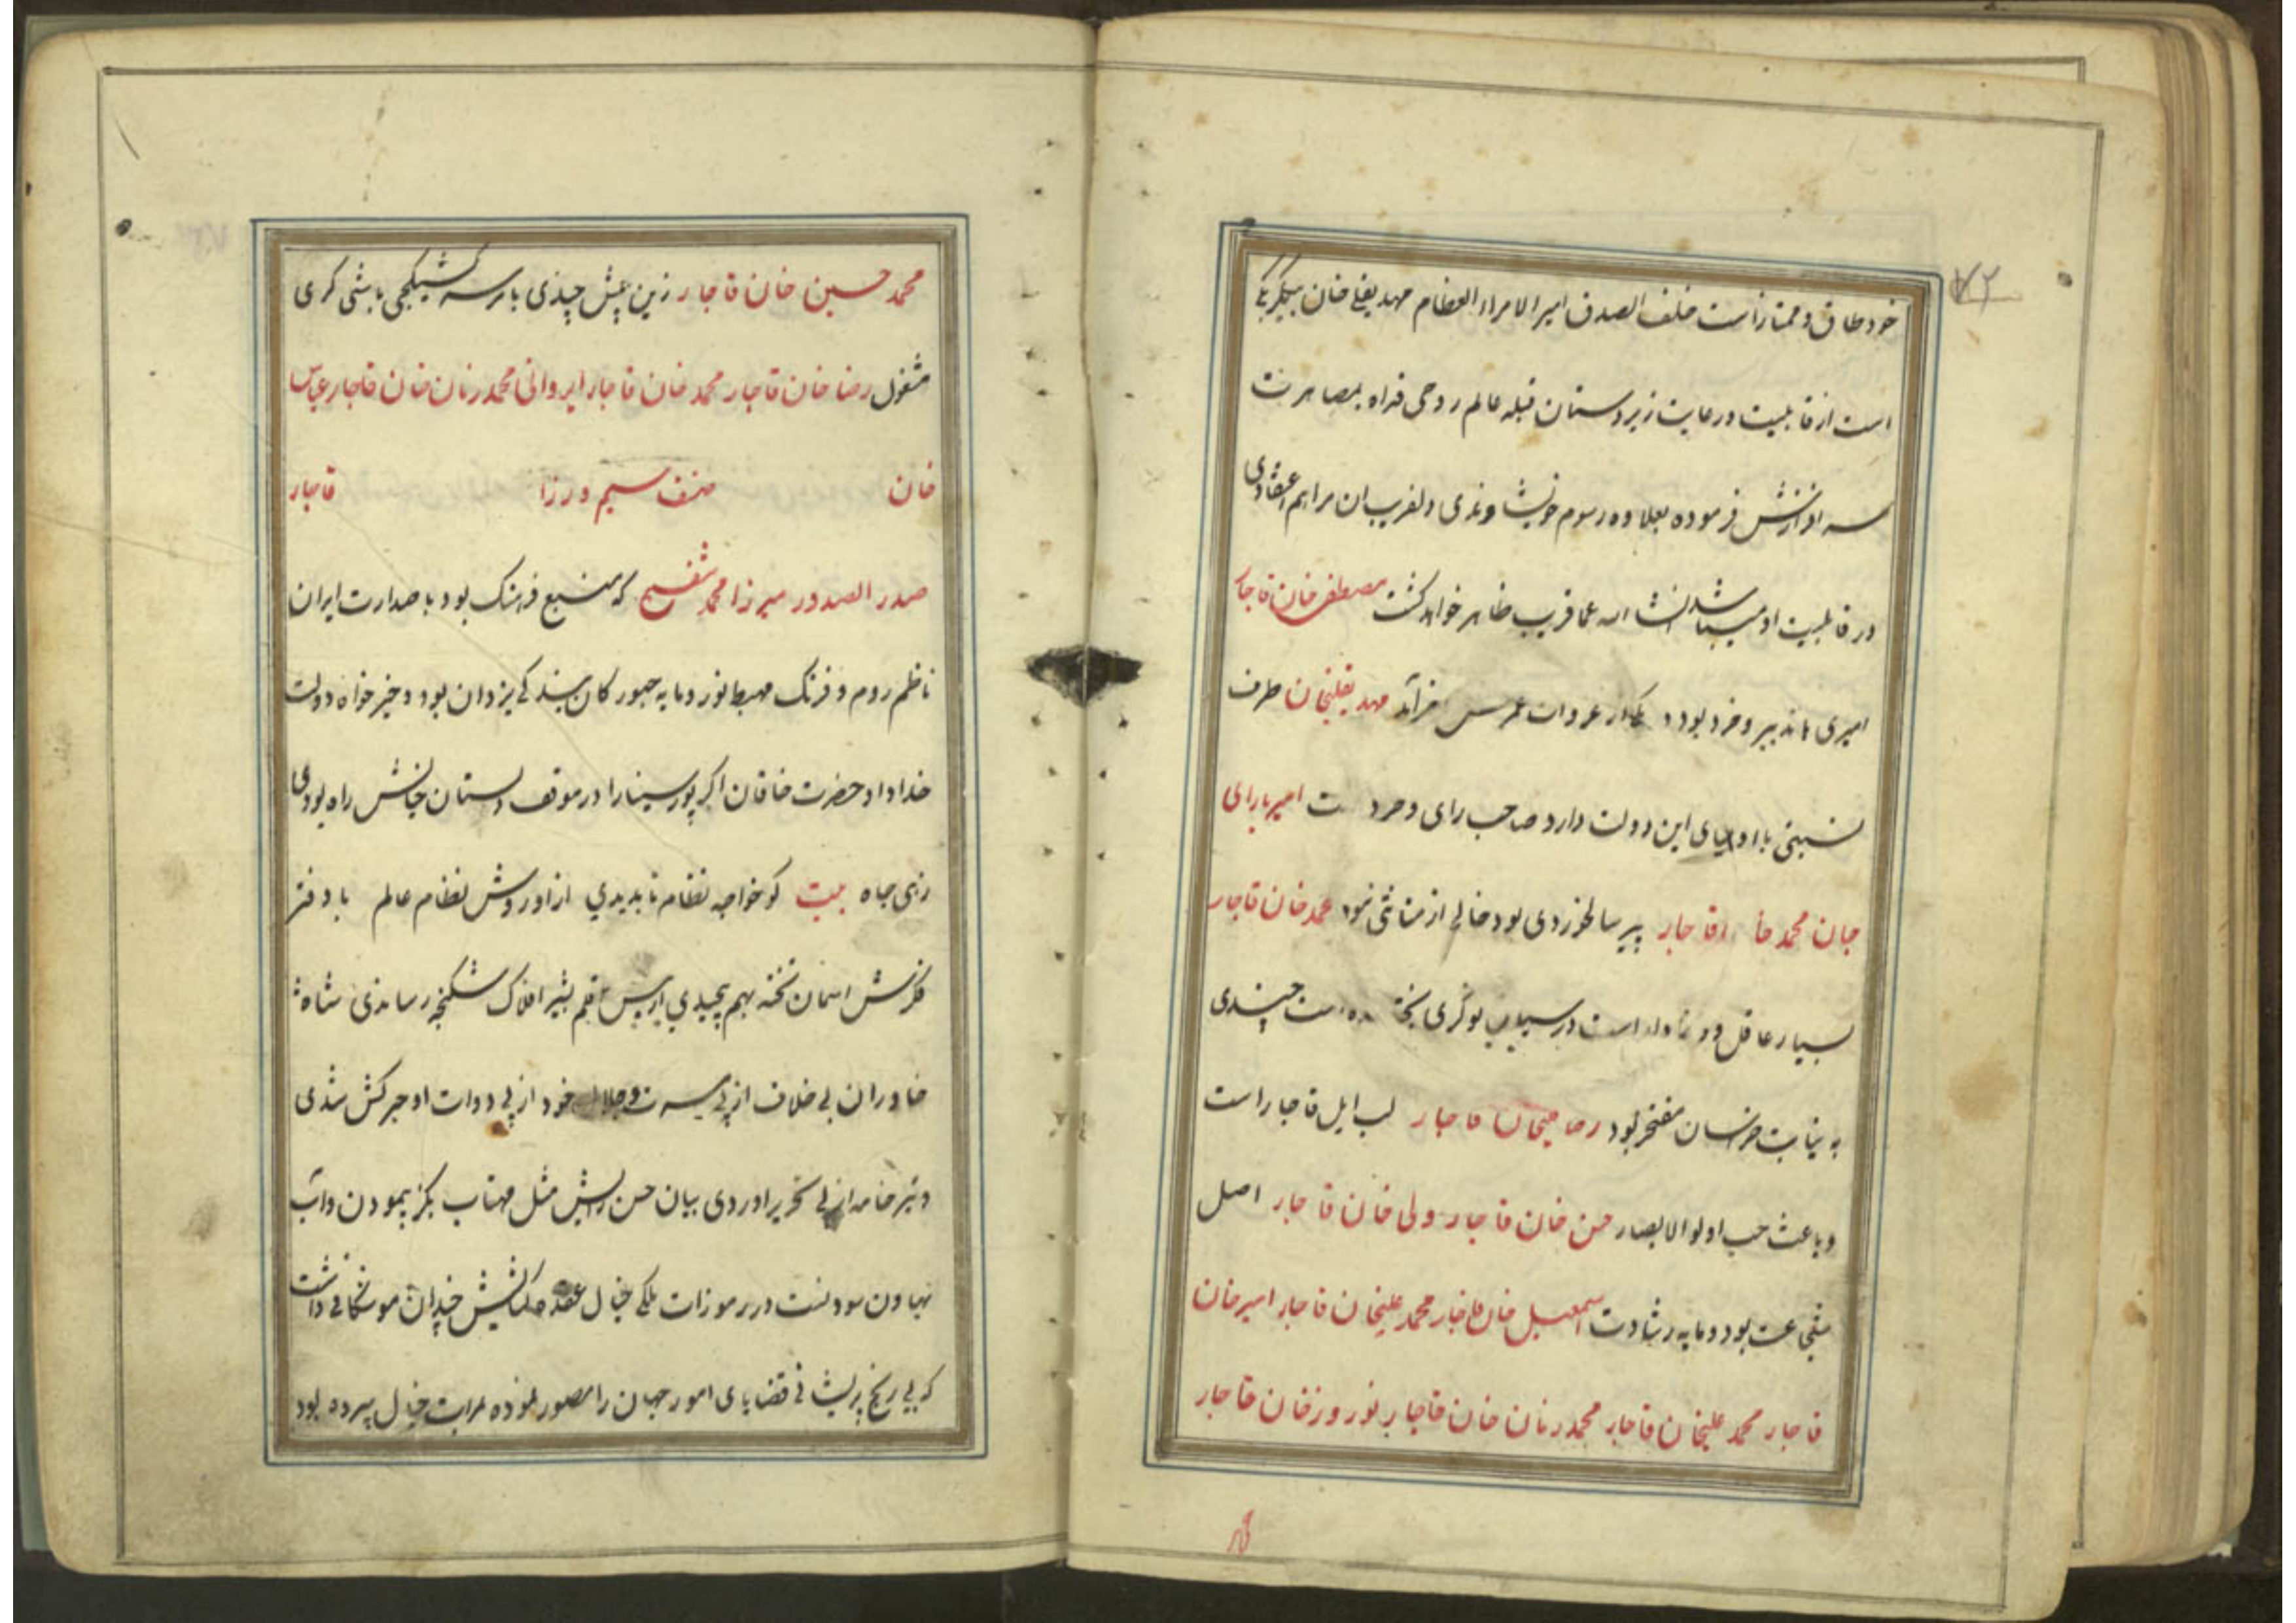 ۷۲
خود طاق و ممتاز است خلف الصدق امیر الامراء العظام مهدیقلی خان بیکلربکی
است از قابلیت و رعایت زیردستان قبله عالم روحی فداه بمصاهرت
سر افرازش فرموده بعلاوه رسوم خویشاوندی و لغریب ان مراهم اعتقادی
در قابلیت او میباشد انشا الله عماقریب ظاهر خواهد کشت مصطفی خان قاجار
امیری با تدبیر و خرد بود مهدیقلیخان طرف
نسبتی با اولیای این دولت دارد صاحب رای و امیر بارای
جان محمد خا قاجار پیر سالخوردی بود خالی از متاثتی نبود محمد خان قاجار
بسیار عاقل و است در اسباب نوکری پخته چندی
به نیابت خراسان مفتخر بود قاجار لب ایل قاجار است
و باعث حب اولوالابصار حسن خان قاجار ولی خان قاجار اصل
شجاعت بود و مایه رشادت اسمعیل خان قاجار محمد علیخان قاجار امیر خان
قاجار محمد علیخان قاجار محمد زمان خان قاجار نوروز خان قاجار
محمد حسین خان قاجار زین پیش چندی بامر سر کشیکچی باشی کری
مشغول رضا خان قاجار محمد خان قاجار ایروانی محمد زمان خان قاجار عباس
خان صنف سیم وزرا قاجار
صدر الصدور میرزا محمد شفیع که منبع فرهنک بود با صدارت ایران
ناظم روم و فرنک مهبط نور و مایه حبور کان بندکی یزدان بود و خیر خواه دولت
خداداد حضرت خاقان اکر پور سینا را در موقف دلستان جانش راه بودی
زهی جاه بیت کو خواجه نظام تا بدیدی از او روش نظام عالم با دفتر
فکرتش اسمان تخته بهم پیچیدی از پس قلم بشیر افلاک شکنجه رساندی شاه
خاوران بی خلاف از پی خود از پی دوات او حبرکش شدی
و تیر خامه از پی تحریر اوردی بیان حسن رایش مثل مهتاب بکز پیمودن و آب
بهاون سودنست در رموزات ملکی خیال عقده کشایش چندان موشکافی داشت
که بی رنج پریشانی قضایای امور جهان را مصور نموده بمرات خیال سپرده بود